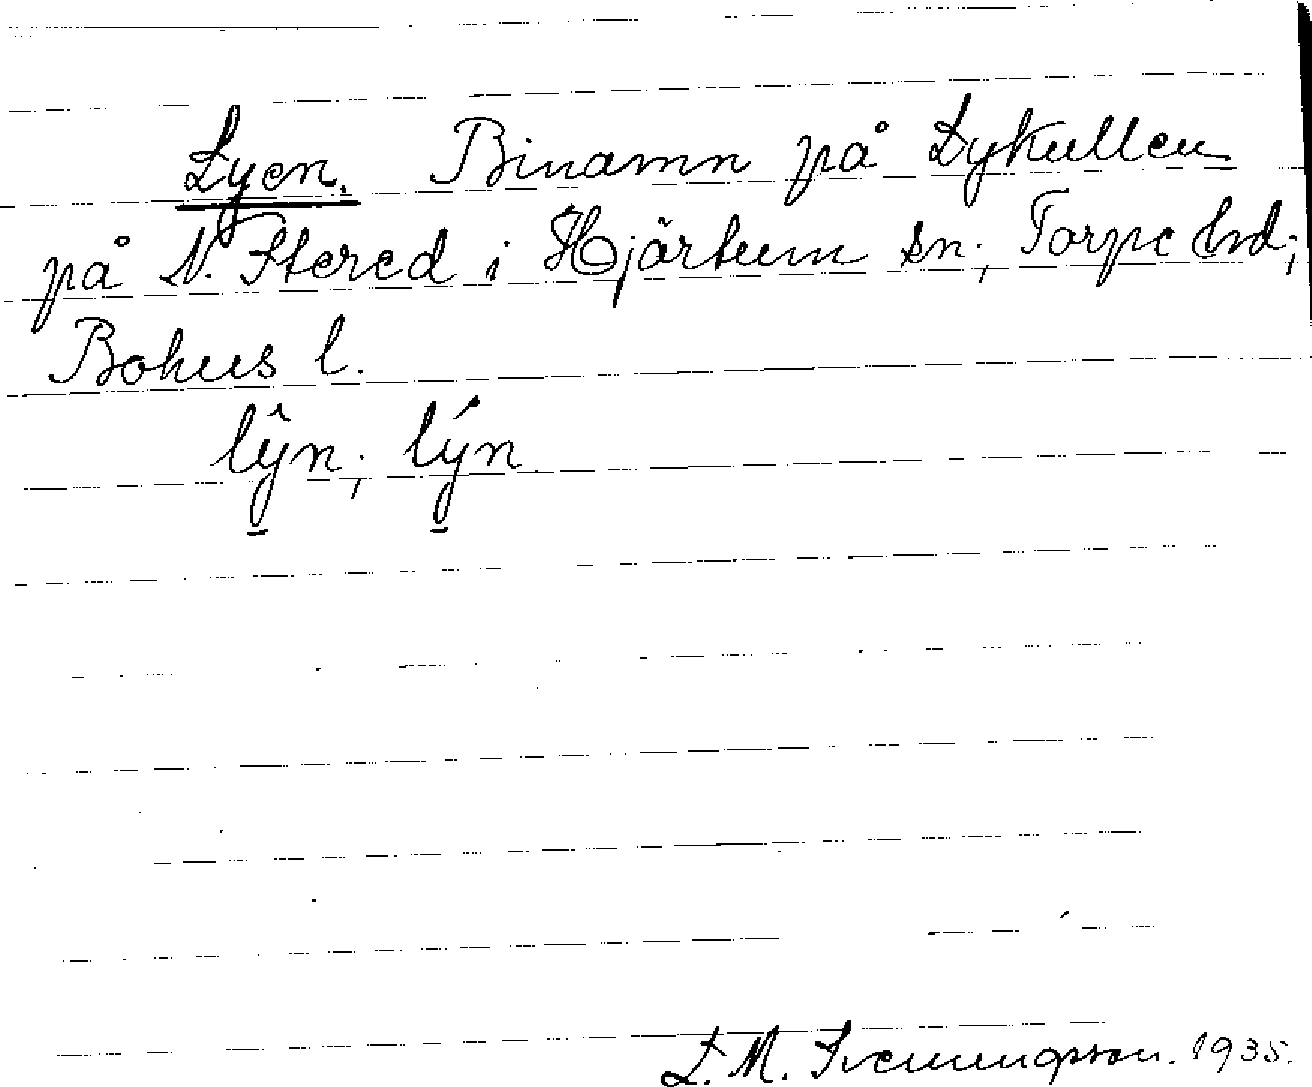 Lyen. Binamn på Lykullen
på N. Stered i Hjärtum sn; Torpe hd;
Bohus l.
lŷn; lýn
L. M. Svenungsson. 1935.